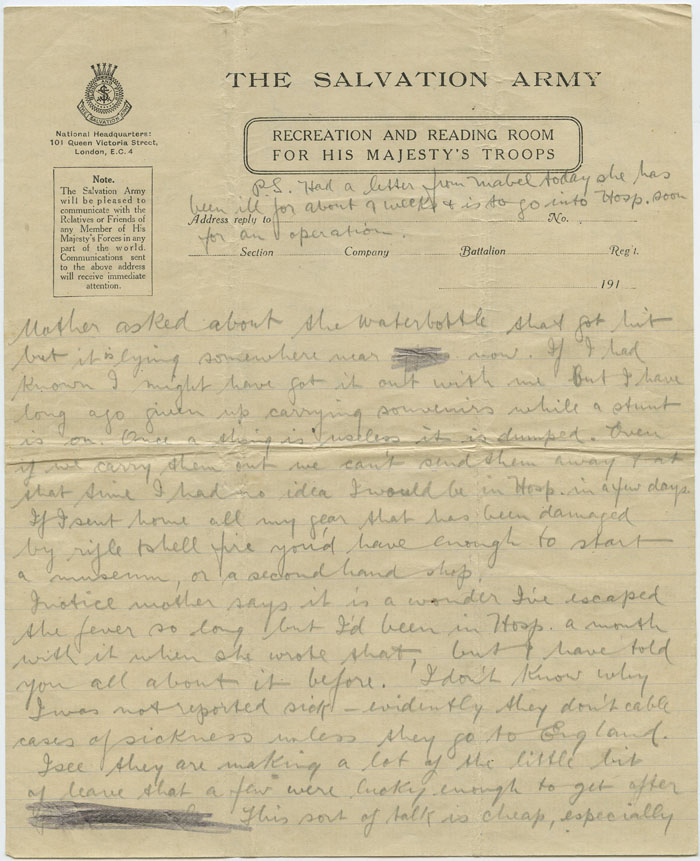 THE SALVATION ARMY
THE SALVATION ARMY
National Headquarters:
101 Queen Victoria Street,
London, E.C. 4
RECREATION AND READING ROOM
FOR HIS MAJESTY'S TROOPS
Note.
The Salvation Army
will be pleased to
communicate with the
Relatives or Friends of
any Member of His
Majesty's Forces in any
part of the world.
Communications sent
to the above address
will receive immediate
attention.
P.S. Had a letter from Mabel today she has
been ill for about a week & is to go into Hosp. soon
Address reply to No.
for an operation.
Section Company Battalion Reg't.
191
Mother asked about the waterbottle that got hit
but it is lying somewhere near now. If I had
known I might have got it out with me but I have
long ago given up carrying souvenirs while a stunt
is on. Once a thing is useless it is dumped. Even
if we carry them out we can't send them away & at
that time I had no idea I would be in Hosp. in a few days
If I sent home all my gear that has been damaged
by rifle & shell fire you'd have enough to start
a museum, or a second hand shop.
I notice mother says it is a wonder I've escaped
the fever so long but I'd been in Hosp. a month
with it when she wrote that, but I have told
you all about it before. I don't know why
I was not reported sick – evidently they don't cable
cases of sickness unless they go to England.
I see they are making a lot of the little bit
of leave that a few were lucky enough to get after
This sort of talk is cheap, especially